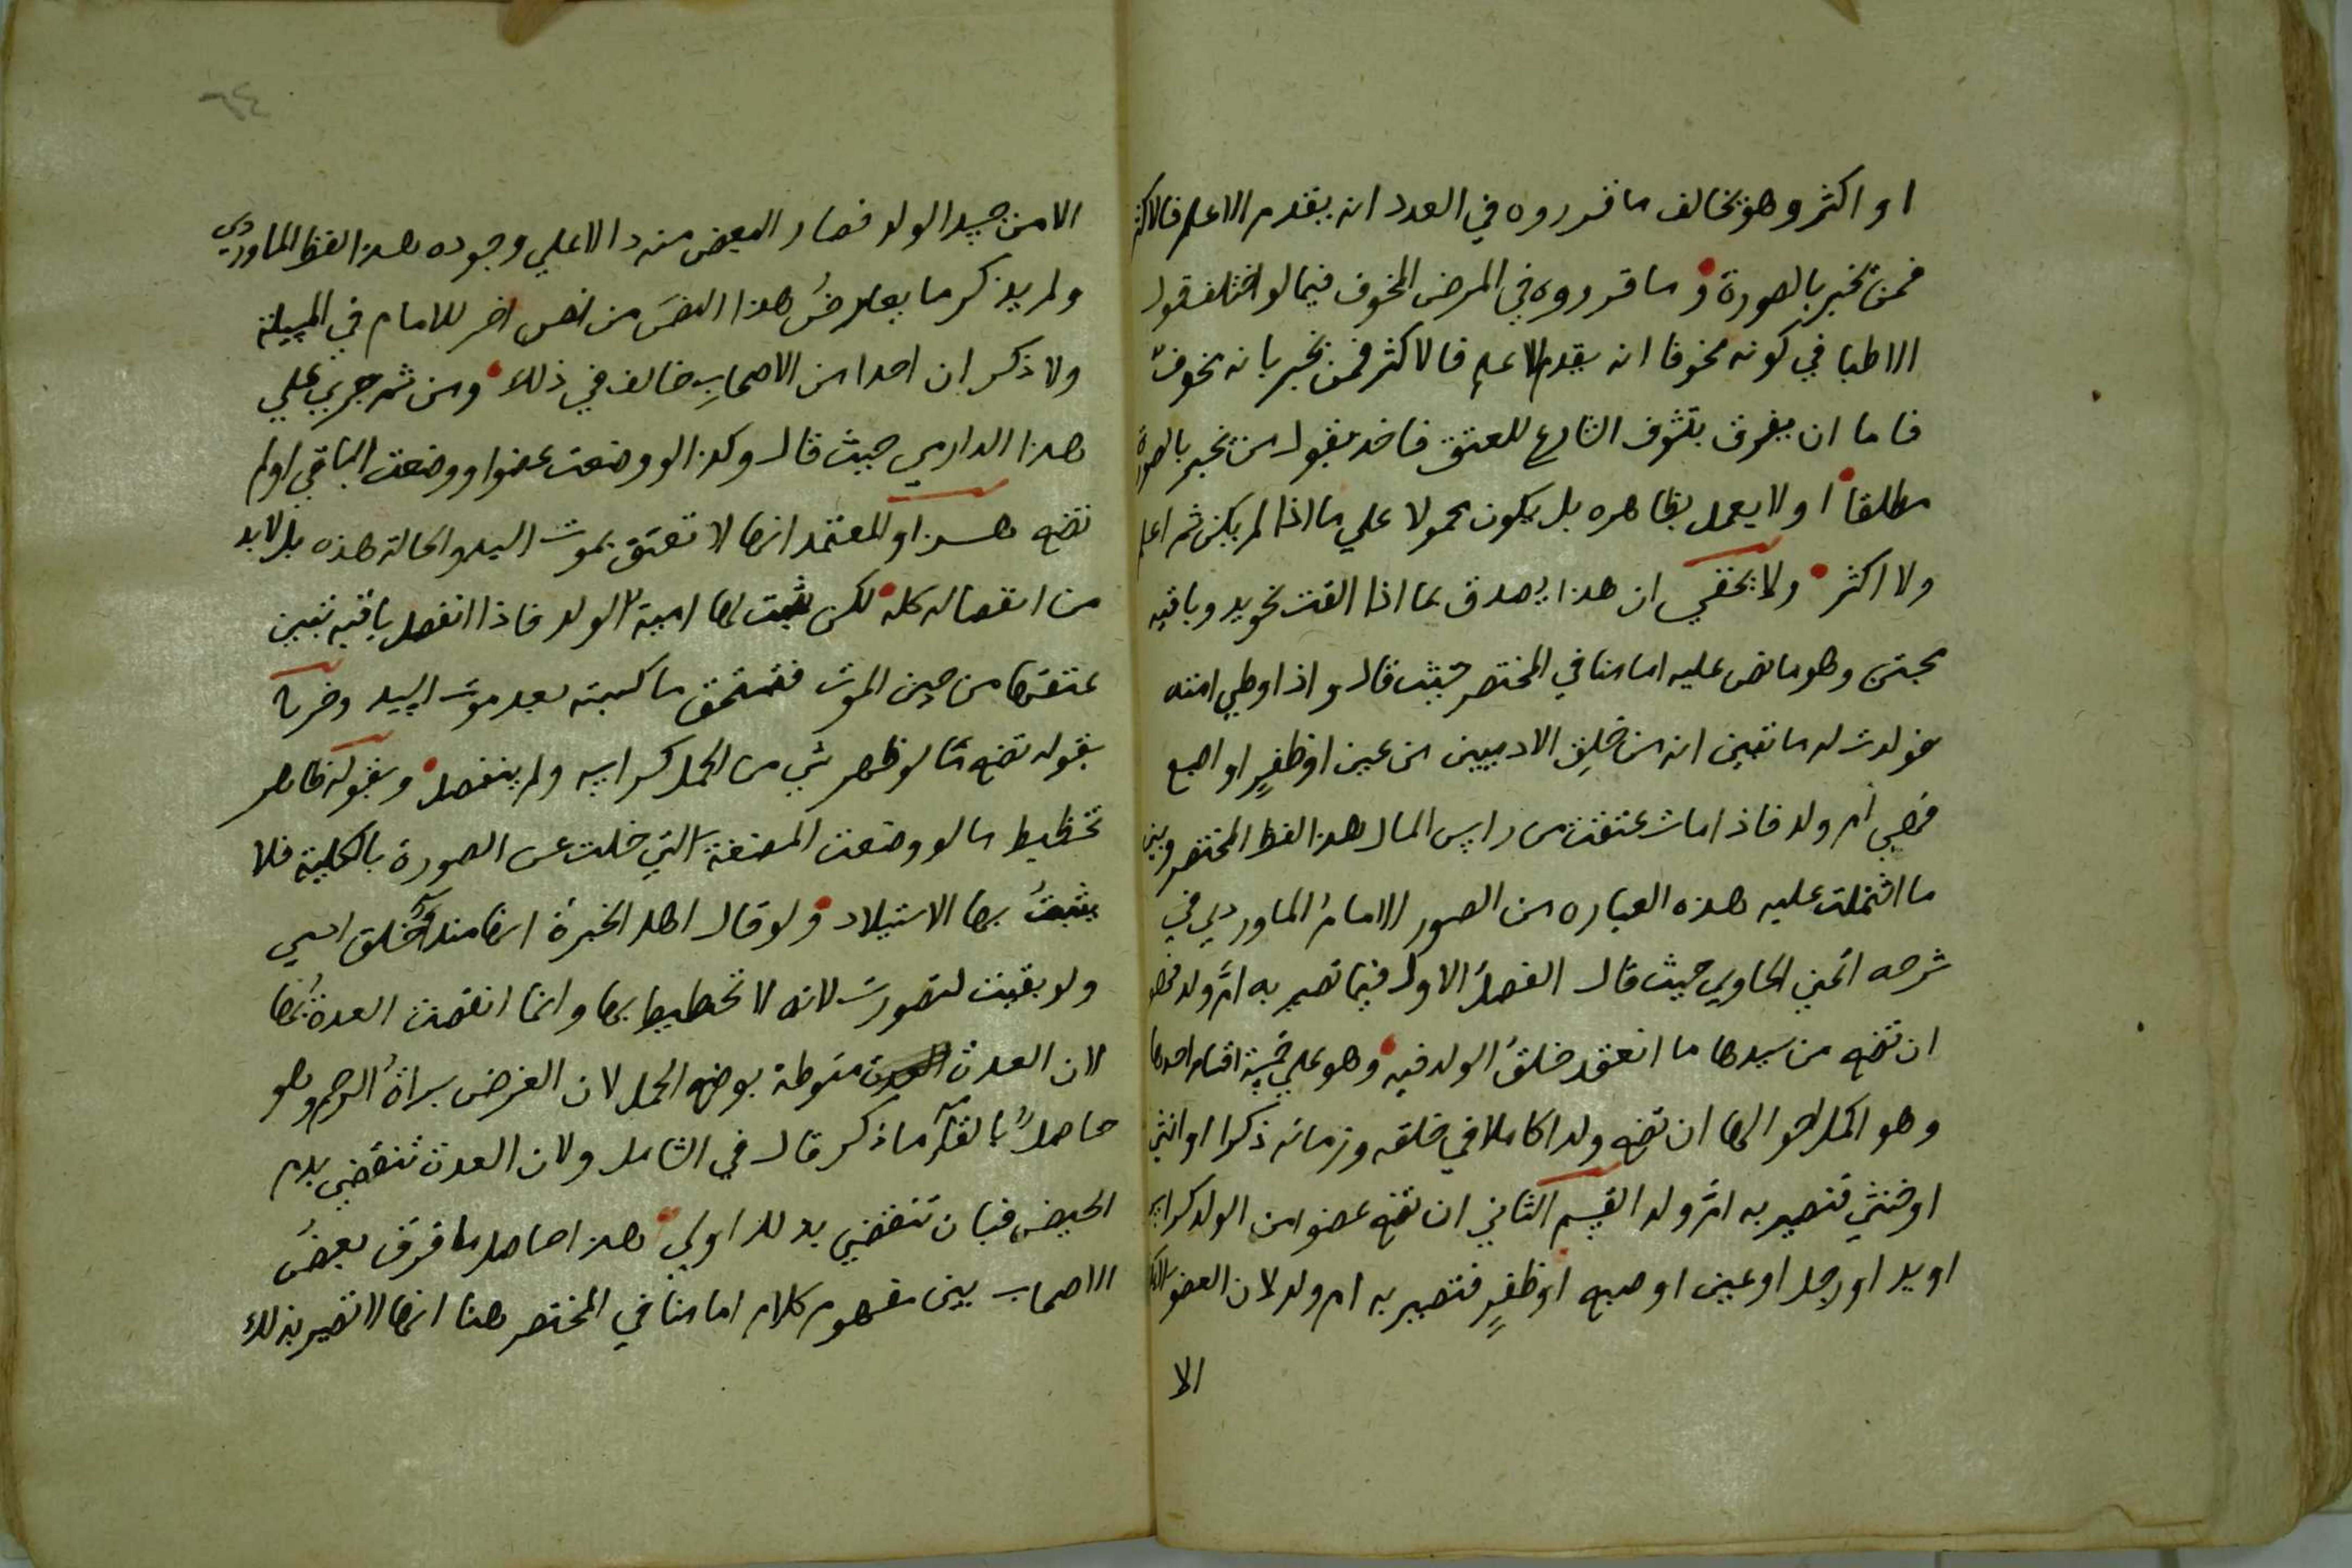 او اكثر وهو يخالف ما قرروه في العدد انه يقدم الاعلم فالاكثر
فمن تخبر بالصورة و ما قرروه في المرض المخوف فيما لو اختلف قول
الاطبا في كونه مخوفا انه يقدم الاعلم فالاكثر فمن يخبر بانه مخوف
فاما ان يفرق بتشوف الشارع للعتق فاخذ بقول من يخبر بالصورة
مطلقا او لا يعمل بظاهره بل يكون محمولا علي ما اذا لم يكن ثم اعلم
ولا اكثر ولا يخفي ان هذا يصدق بما اذا القت نحو يد وباقيه
مجتن وهو ما نص عليه امامنا في المختصر حيث قال و اذا وطي امته
فولدت له ما تبين انه من خلق الادميين من عين او ظفرٍ او اصبع
فهي ام ولد فاذا مات عتقت من راس المال هذا لفظ المختصر وبين
ما اشتملت عليه هذه العباره من الصور الامامُ الماوردي في
شرحه اعني الحاوي حيث قال الفصل الاول فيما تصير به ام ولد فهو
ان تضع من سيدها ما انعقد خلقُ الولد فيه وهو علي خمسة اقسام احدها
وهو اكمل احوالها ان تضع ولدا كاملا في خلقه وزمانه ذكرا او انثي
او خنثي فتصير به ام ولد القسم الثاني ان تضع عضوا من الولد كراس
او يد او رجل او عين او صبع او ظفرٍ فتصير به ام ولد لان العضو لا يكون
الا
الا من جسد الولد فصار البعض منه دالا علي وجوده هذا لفظ الماوردي
ولم يذكر ما يعارضُ هذا النصَ من نص اخر للامام في المسيلة
ولا ذكر ان احدا من الاصحابِ خالف في ذلك ومن ثم جري علي
هذا الدارمي حيث قال وكذا لو وضعت عضوا ووضعت الباقي او لم
تضع هـذا والمعتمد انها لا تعتق بموت السيد والحالة هذه بل لا بد
من انفصاله كله لكن يثبت لها امية الولد فاذا انفصل باقيه تبين
عتقها من حين الموت فتستحق ما كسبته بعد موت السيد وخرج
بقوله تضع ما لو ظهر شي من الحمل كراسه ولم ينفصل وبقوله ظاهر
تخطيط ما لو وضعت المضغة التي خلت عن الصورة بالكلية فلا
يثبتُ بها الاستيلاد ولو قال اهل الخبرة انها مبتدأ خلق ادمي
ولو بقيت لتصورت لانه لا تخطيط بها وانما انقضت العدة بها
لان العدة منوطة بوضع الحمل لان الغرض براة الرحم وهو
حاصلٌ بالقاء ما ذكر قال في الشامل ولان العدة تنقضي بدم
الحيض فبان تنقضي بذلك اولي هذا حاصل ما فرق بعض
الاصحاب بين مفهوم كلام امامنا في المختصر هنا انها لا تصير بذلك